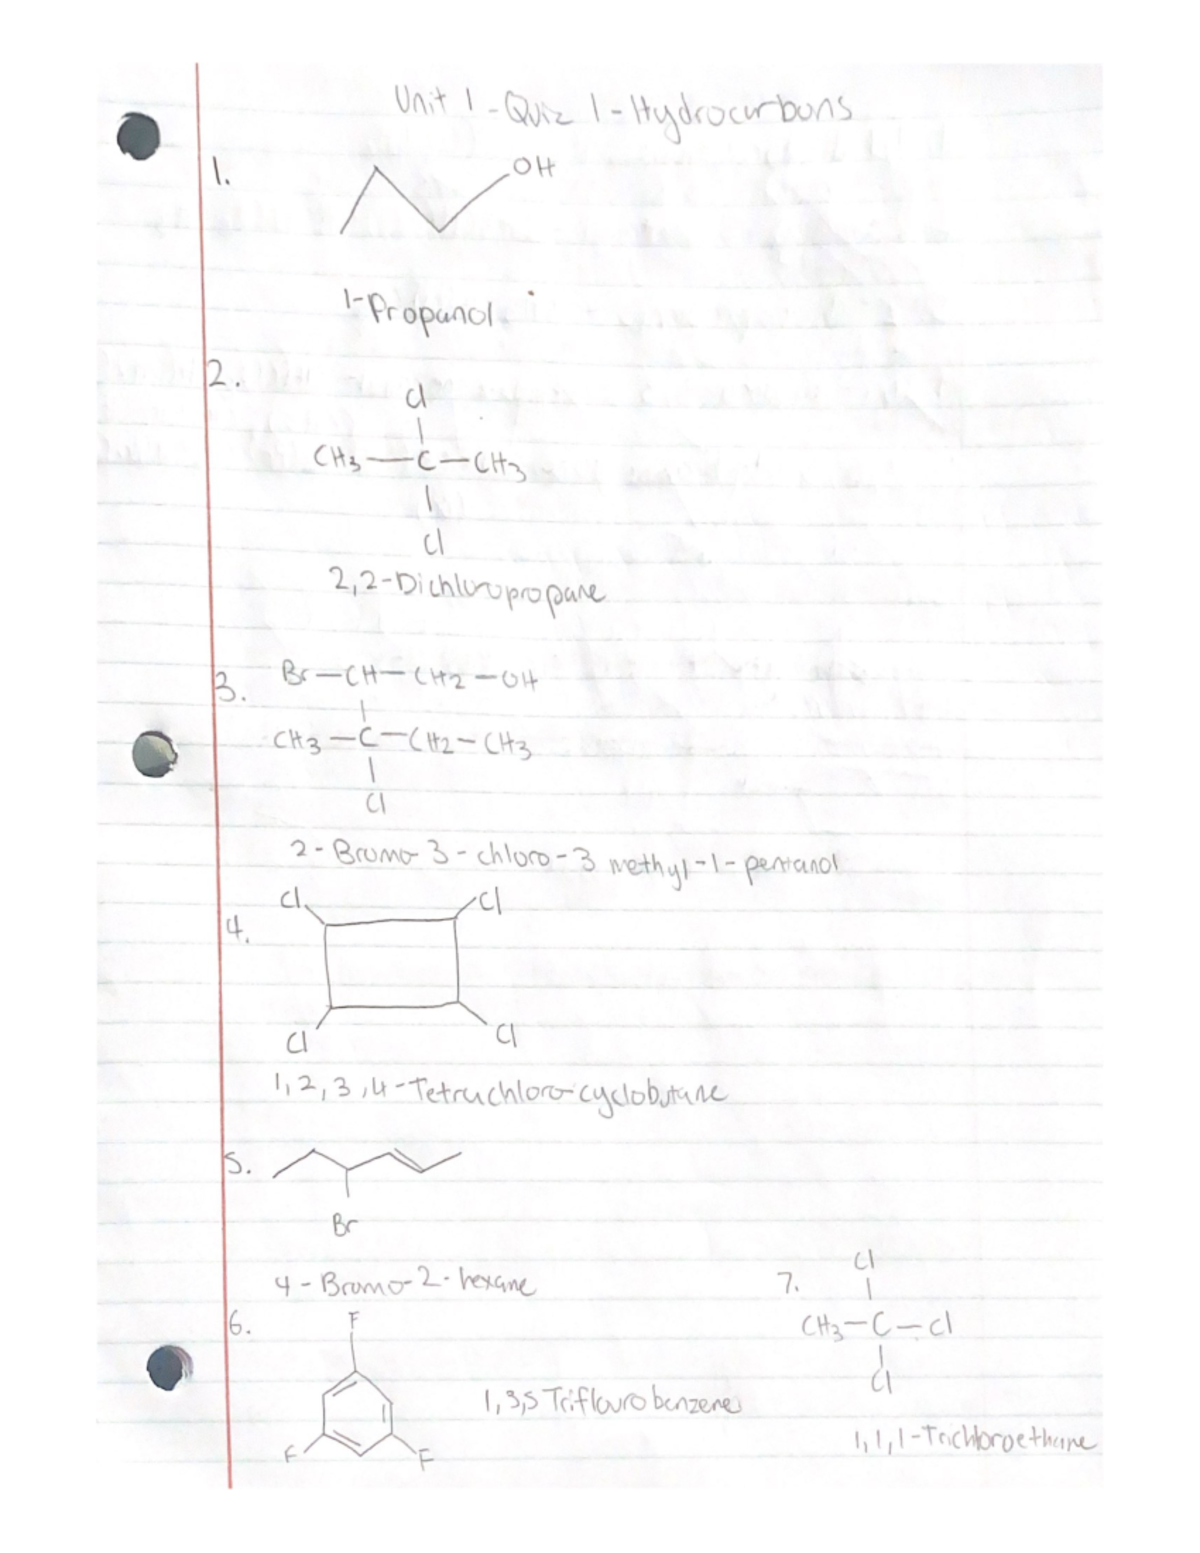 Unit 1 - Quiz 1 - Hydrocarbons
1.
OH
1-Propanol
2.
Cl
CH3—C—CH3
Cl
2,2-Dichloropropane
3.
Br—CH—CH2—OH
CH3—C—CH2—CH3
Cl
2-Bromo-3-chloro-3 methyl-1-pentanol
Cl Cl
4.
Cl Cl
1,2,3,4-Tetrachloro-cyclobutane
5.
Br
4-Bromo-2-hexane
6.
F
F F
1,3,5 Triflourobenzene
7.
Cl
CH3—C—Cl
Cl
1,1,1-Trichloroethane